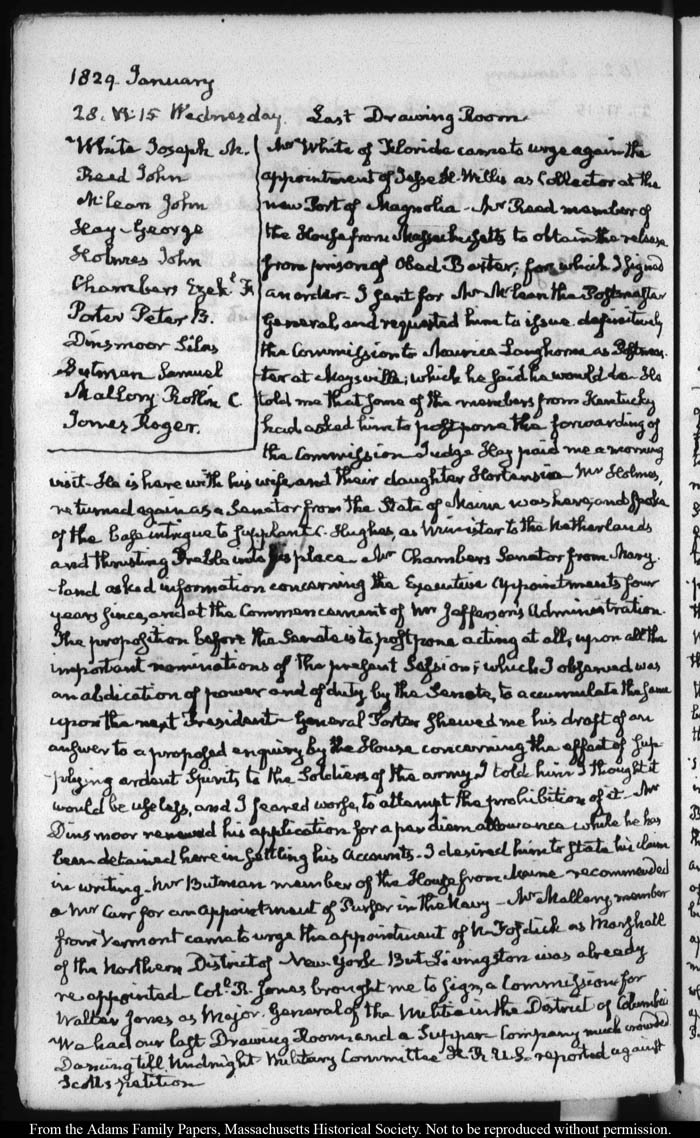 1829. January
28. VI:15 Wednesday. Last Drawing Room
White Joseph M.
Reed John
McLean John
Hay George
Holmes John
Chambers Ezekl. F.
Porter Peter B.
Dinsmoor Silas
Butman Samuel
Mallory Rollin C.
Jones Roger.
Mr White of Floride came to urge again the
appointment of Jesse H. Willis as Collector at the
new Port of Magnolia. Mr Reed member of
the House from Massachusetts to obtain the release
from prison of Obed Baxter; for which I signed
an order. I sent for Mr McLean the Postmaster
General, and requested him to issue definitively
the Commission to Maurice Langhorne as Postmas-
ter at Maysville; which he said he would do. He
told me that some of the members from Kentucky
had asked him to postpone the forwarding of
the Commission. Judge Hay paid me a morning
visit. He is here with his wife and their daughter Hortensia. Mr Holmes,
returned again as a Senator from the State of Maine was here, and spoke
of the base intrigue to supplant C. Hughes, as Minister to the Netherlands
and thrusting Preble into his place. Mr Chambers Senator from Mary-
-land asked information concerning the Executive appointments four
years since, and at the Commencement of Mr Jefferson's Administration.
The proposition before the Senate is to postpone acting at all, upon all the
important nominations of the present Session; which I observed was
an abdication of power and of duty by the Senate, to accumulate the same
upon the next President. General Porter shewed me his draft of an
answer to a proposed enquiry by the House concerning the effect of sup-
plying ardent Spirits to the Soldiers of the army. I told him I thought it
would be useless, and I feared worse, to attempt the prohibition of it. Mr
Dinsmoor renewed his application for a per diem allowance while he has
been detained here in settling his Accounts. I desired him to state his claim
in writing. Mr Butman member of the House from Maine recommended
a Mr Carr for an appointment of Purser in the Navy. Mr Mallory member
from Vermont came to urge the appointment of N. Fosdick as Marshall
of the Northern District of New-York. But Livingston was already
re-appointed. Coll. R. Jones brought me to sign a Commission for
Walter Jones as Major-General of the Militia in the District of Columbia
We had our last Drawing Room and a Supper. Company much crowded
Dancing till Midnight. Military Committee H.R.U.S. reported against
Scott's petition
From the Adams Family Papers, Massachusetts Historical Society. Not to be reproduced without permission.